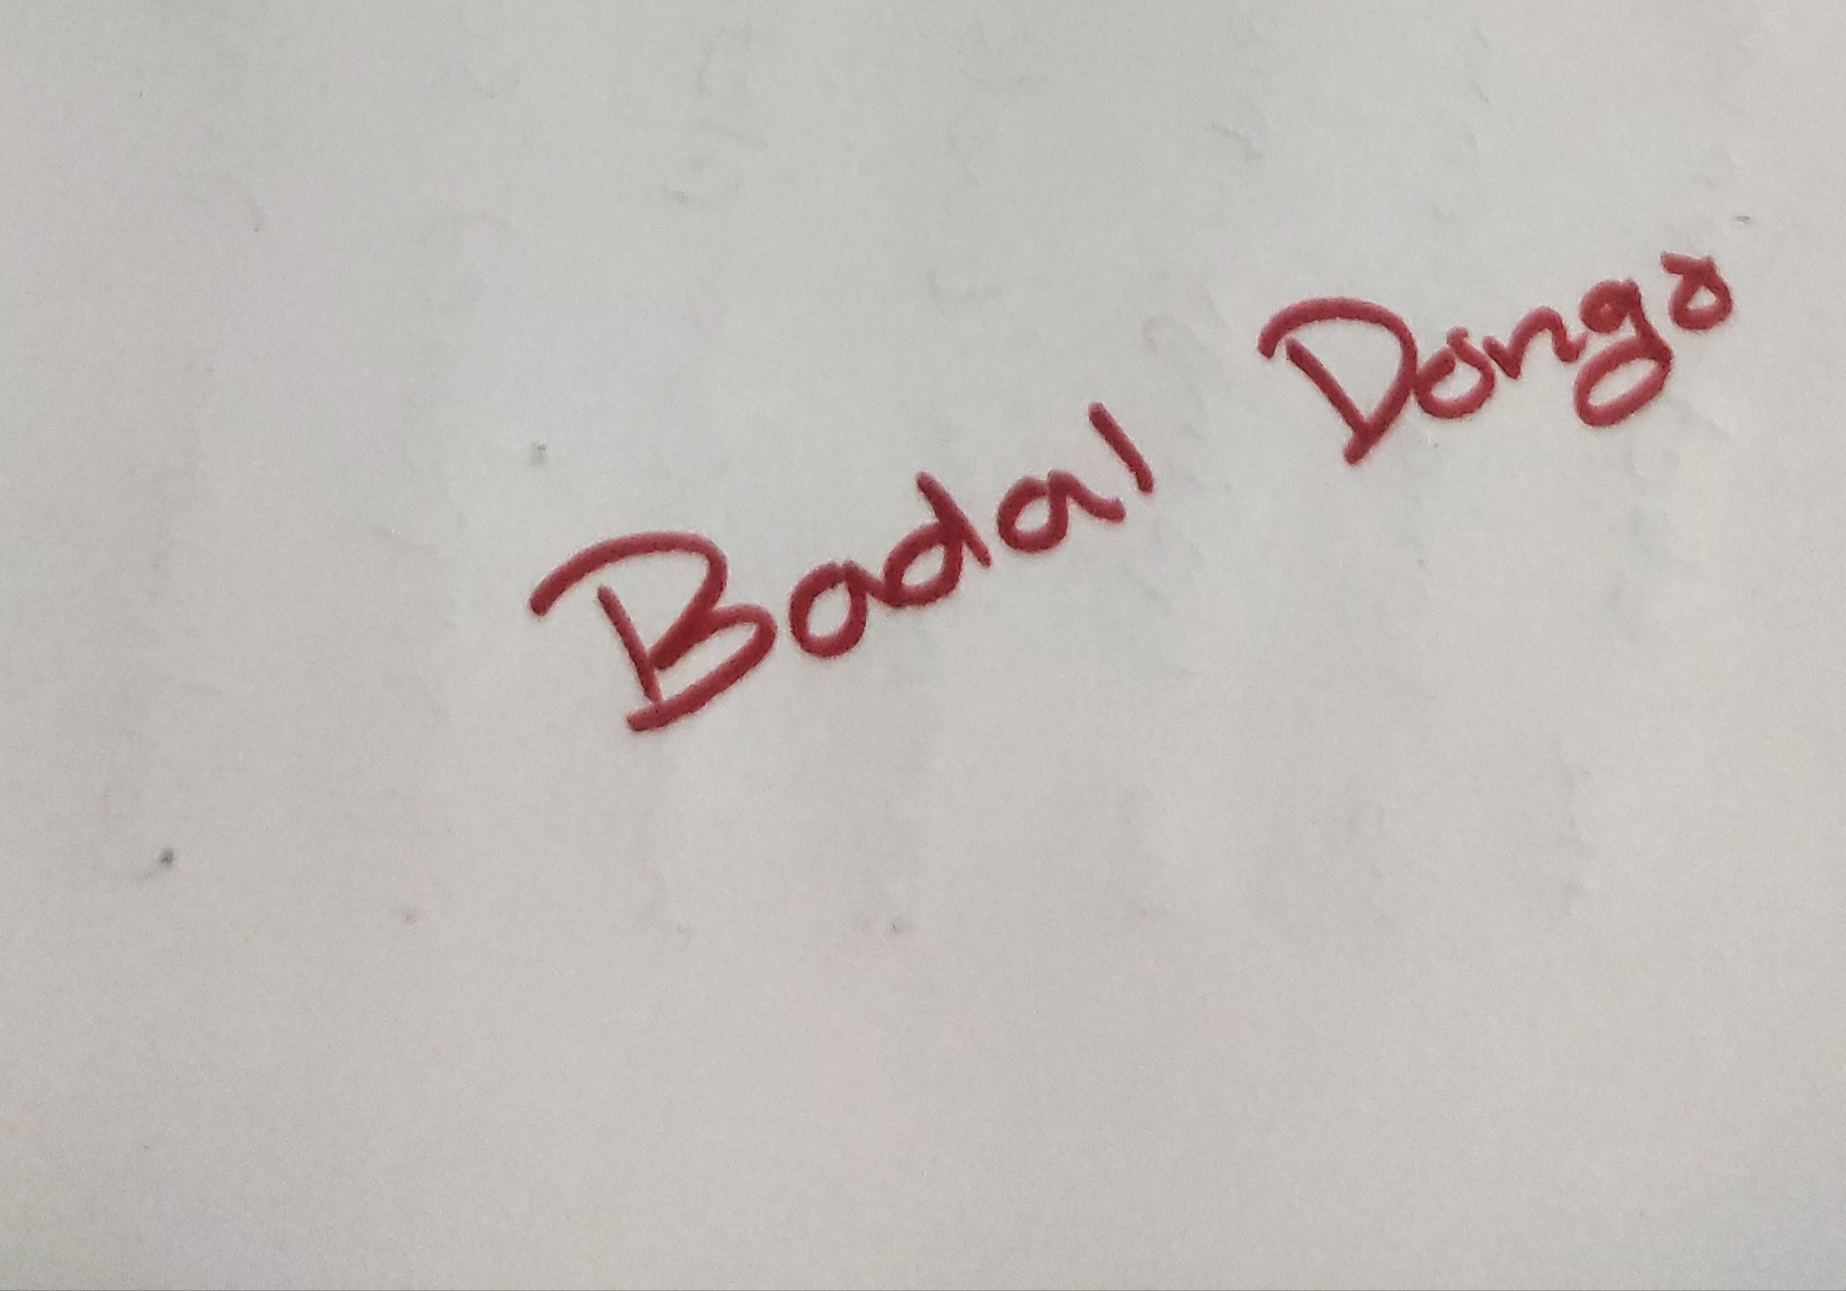 Badal Dongo